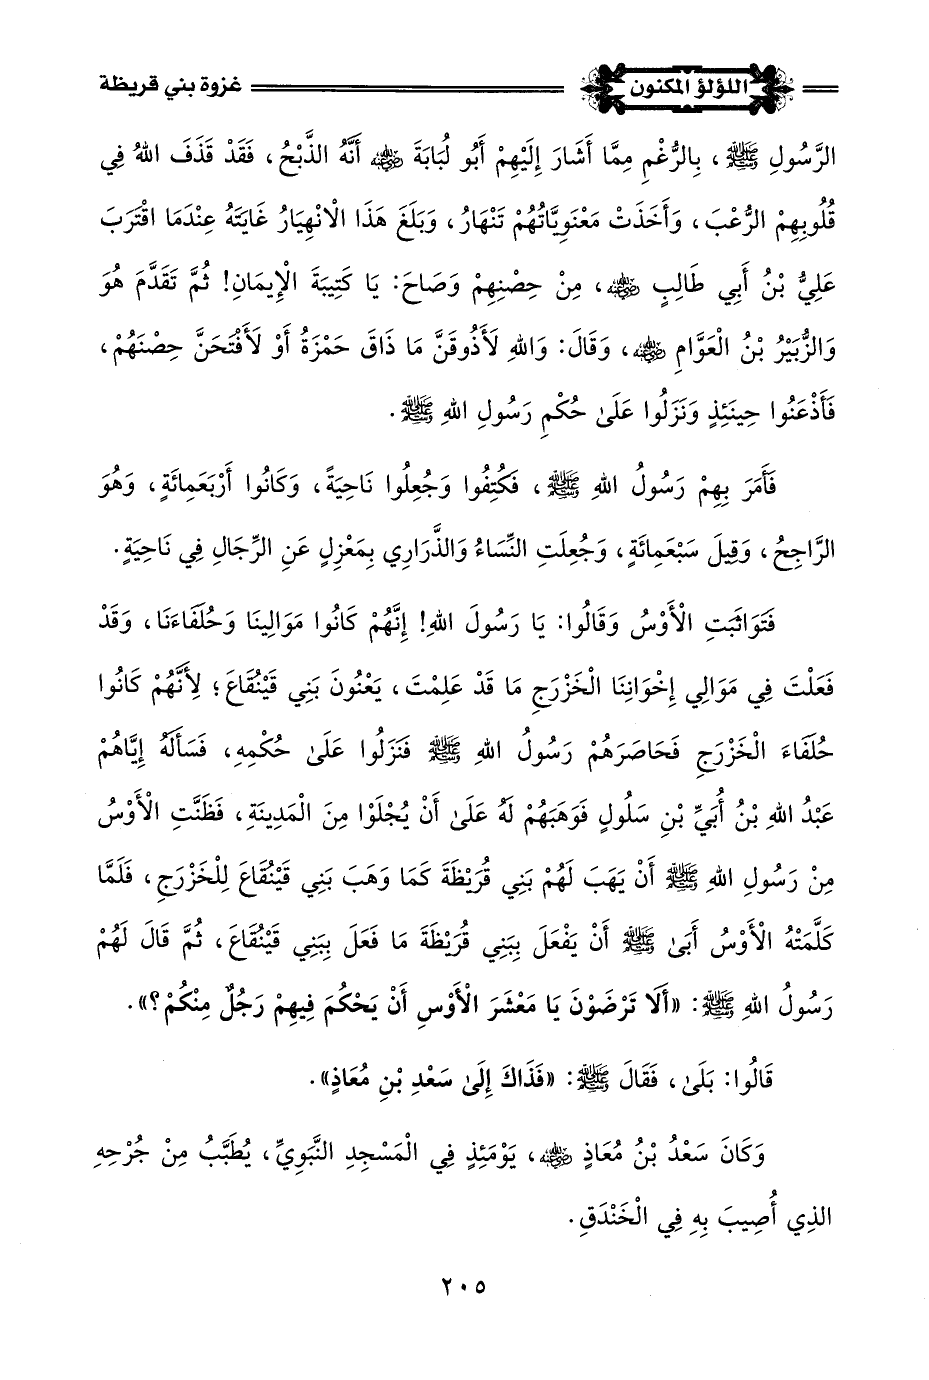 اللؤلؤ المكنون
غزوة بني قريظة
الرَّسُولِ ﷺ، بِالرُّغْمِ مِمَّا أَشَارَ إِلَيْهِمْ أَبُو لُبَابَةَ رضي الله عنه أَنَّهُ الذَّبْحُ، فَقَدْ قَذَفَ اللهُ فِي
قُلُوبِهِمْ الرُّعْبَ، وَأَخَذَتْ مَعْنَوِيَّاتُهُمْ تَنْهَارُ، وَبَلَغَ هَذَا الْانْهِيَارُ غَايَتَهُ عِنْدَمَا اقْتَرَبَ
عَلِيُّ بْنُ أَبِي طَالِبٍ رضي الله عنه، مِنْ حِصْنِهِمْ وَصَاحَ: يَا كَتِيبَةَ الْإِيمَانِ! ثُمَّ تَقَدَّمَ هُوَ
وَالزُّبَيْرُ بْنُ الْعَوَّامِ رضي الله عنه، وَقَالَ: وَاللهِ لَأَذُوقَنَّ مَا ذَاقَ حَمْزَةُ أَوْ لَأَفْتَحَنَّ حِصْنَهُمْ،
فَأَذْعَنُوا حِينَئِذٍ وَنَزَلُوا عَلَىٰ حُكْمِ رَسُولِ اللهِ ﷺ.
فَأَمَرَ بِهِمْ رَسُولُ اللهِ ﷺ، فَكُتِفُوا وَجُعِلُوا نَاحِيَةً، وَكَانُوا أَرْبَعَمِائَةٍ، وَهُوَ
الرَّاجِحُ، وَقِيلَ سَبْعَمِائَةٍ، وَجُعِلَتِ النِّسَاءُ وَالذَّرَارِي بِمَعْزِلٍ عَنِ الرِّجَالِ فِي نَاحِيَةٍ.
فَتَوَاثَبَتِ الْأَوْسُ وَقَالُوا: يَا رَسُولَ اللهِ! إِنَّهُمْ كَانُوا مَوَالِينَا وَحُلَفَاءَنَا، وَقَدْ
فَعَلْتَ فِي مَوَالِي إِخْوَانِنَا الْخَزْرَجِ مَا قَدْ عَلِمْتَ، يَعْنُونَ بَنِي قَيْنُقَاعَ؛ لِأَنَّهُمْ كَانُوا
حُلَفَاءَ الْخَزْرَجِ فَحَاصَرَهُمْ رَسُولُ اللهِ ﷺ فَنَزَلُوا عَلَىٰ حُكْمِهِ، فَسَأَلَهُ إِيَّاهُمْ
عَبْدُ اللهِ بْنُ أُبَيِّ بْنِ سَلُولٍ فَوَهَبَهُمْ لَهُ عَلَىٰ أَنْ يُجْلَوْا مِنَ الْمَدِينَةِ، فَظَنَّتِ الْأَوْسُ
مِنْ رَسُولِ اللهِ ﷺ أَنْ يَهَبَ لَهُمْ بَنِي قُرَيْظَةَ كَمَا وَهَبَ بَنِي قَيْنُقَاعَ لِلْخَزْرَجِ، فَلَمَّا
كَلَّمَتْهُ الْأَوْسُ أَبَىٰ ﷺ أَنْ يَفْعَلَ بِبَنِي قُرَيْظَةَ مَا فَعَلَ بِبَنِي قَيْنُقَاعَ، ثُمَّ قَالَ لَهُمْ
رَسُولُ اللهِ ﷺ: «أَلَا تَرْضَوْنَ يَا مَعْشَرَ الْأَوْسِ أَنْ يَحْكُمَ فِيهِمْ رَجُلٌ مِنْكُمْ؟».
قَالُوا: بَلَىٰ، فَقَالَ ﷺ: «فَذَاكَ إِلَىٰ سَعْدِ بْنِ مُعَاذٍ».
وَكَانَ سَعْدُ بْنُ مُعَاذٍ رضي الله عنه، يَوْمَئِذٍ فِي الْمَسْجِدِ النَّبَوِيِّ، يُطَبَّبُ مِنْ جُرْحِهِ
الذِي أُصِيبَ بِهِ فِي الْخَنْدَقِ.
٢٠٥